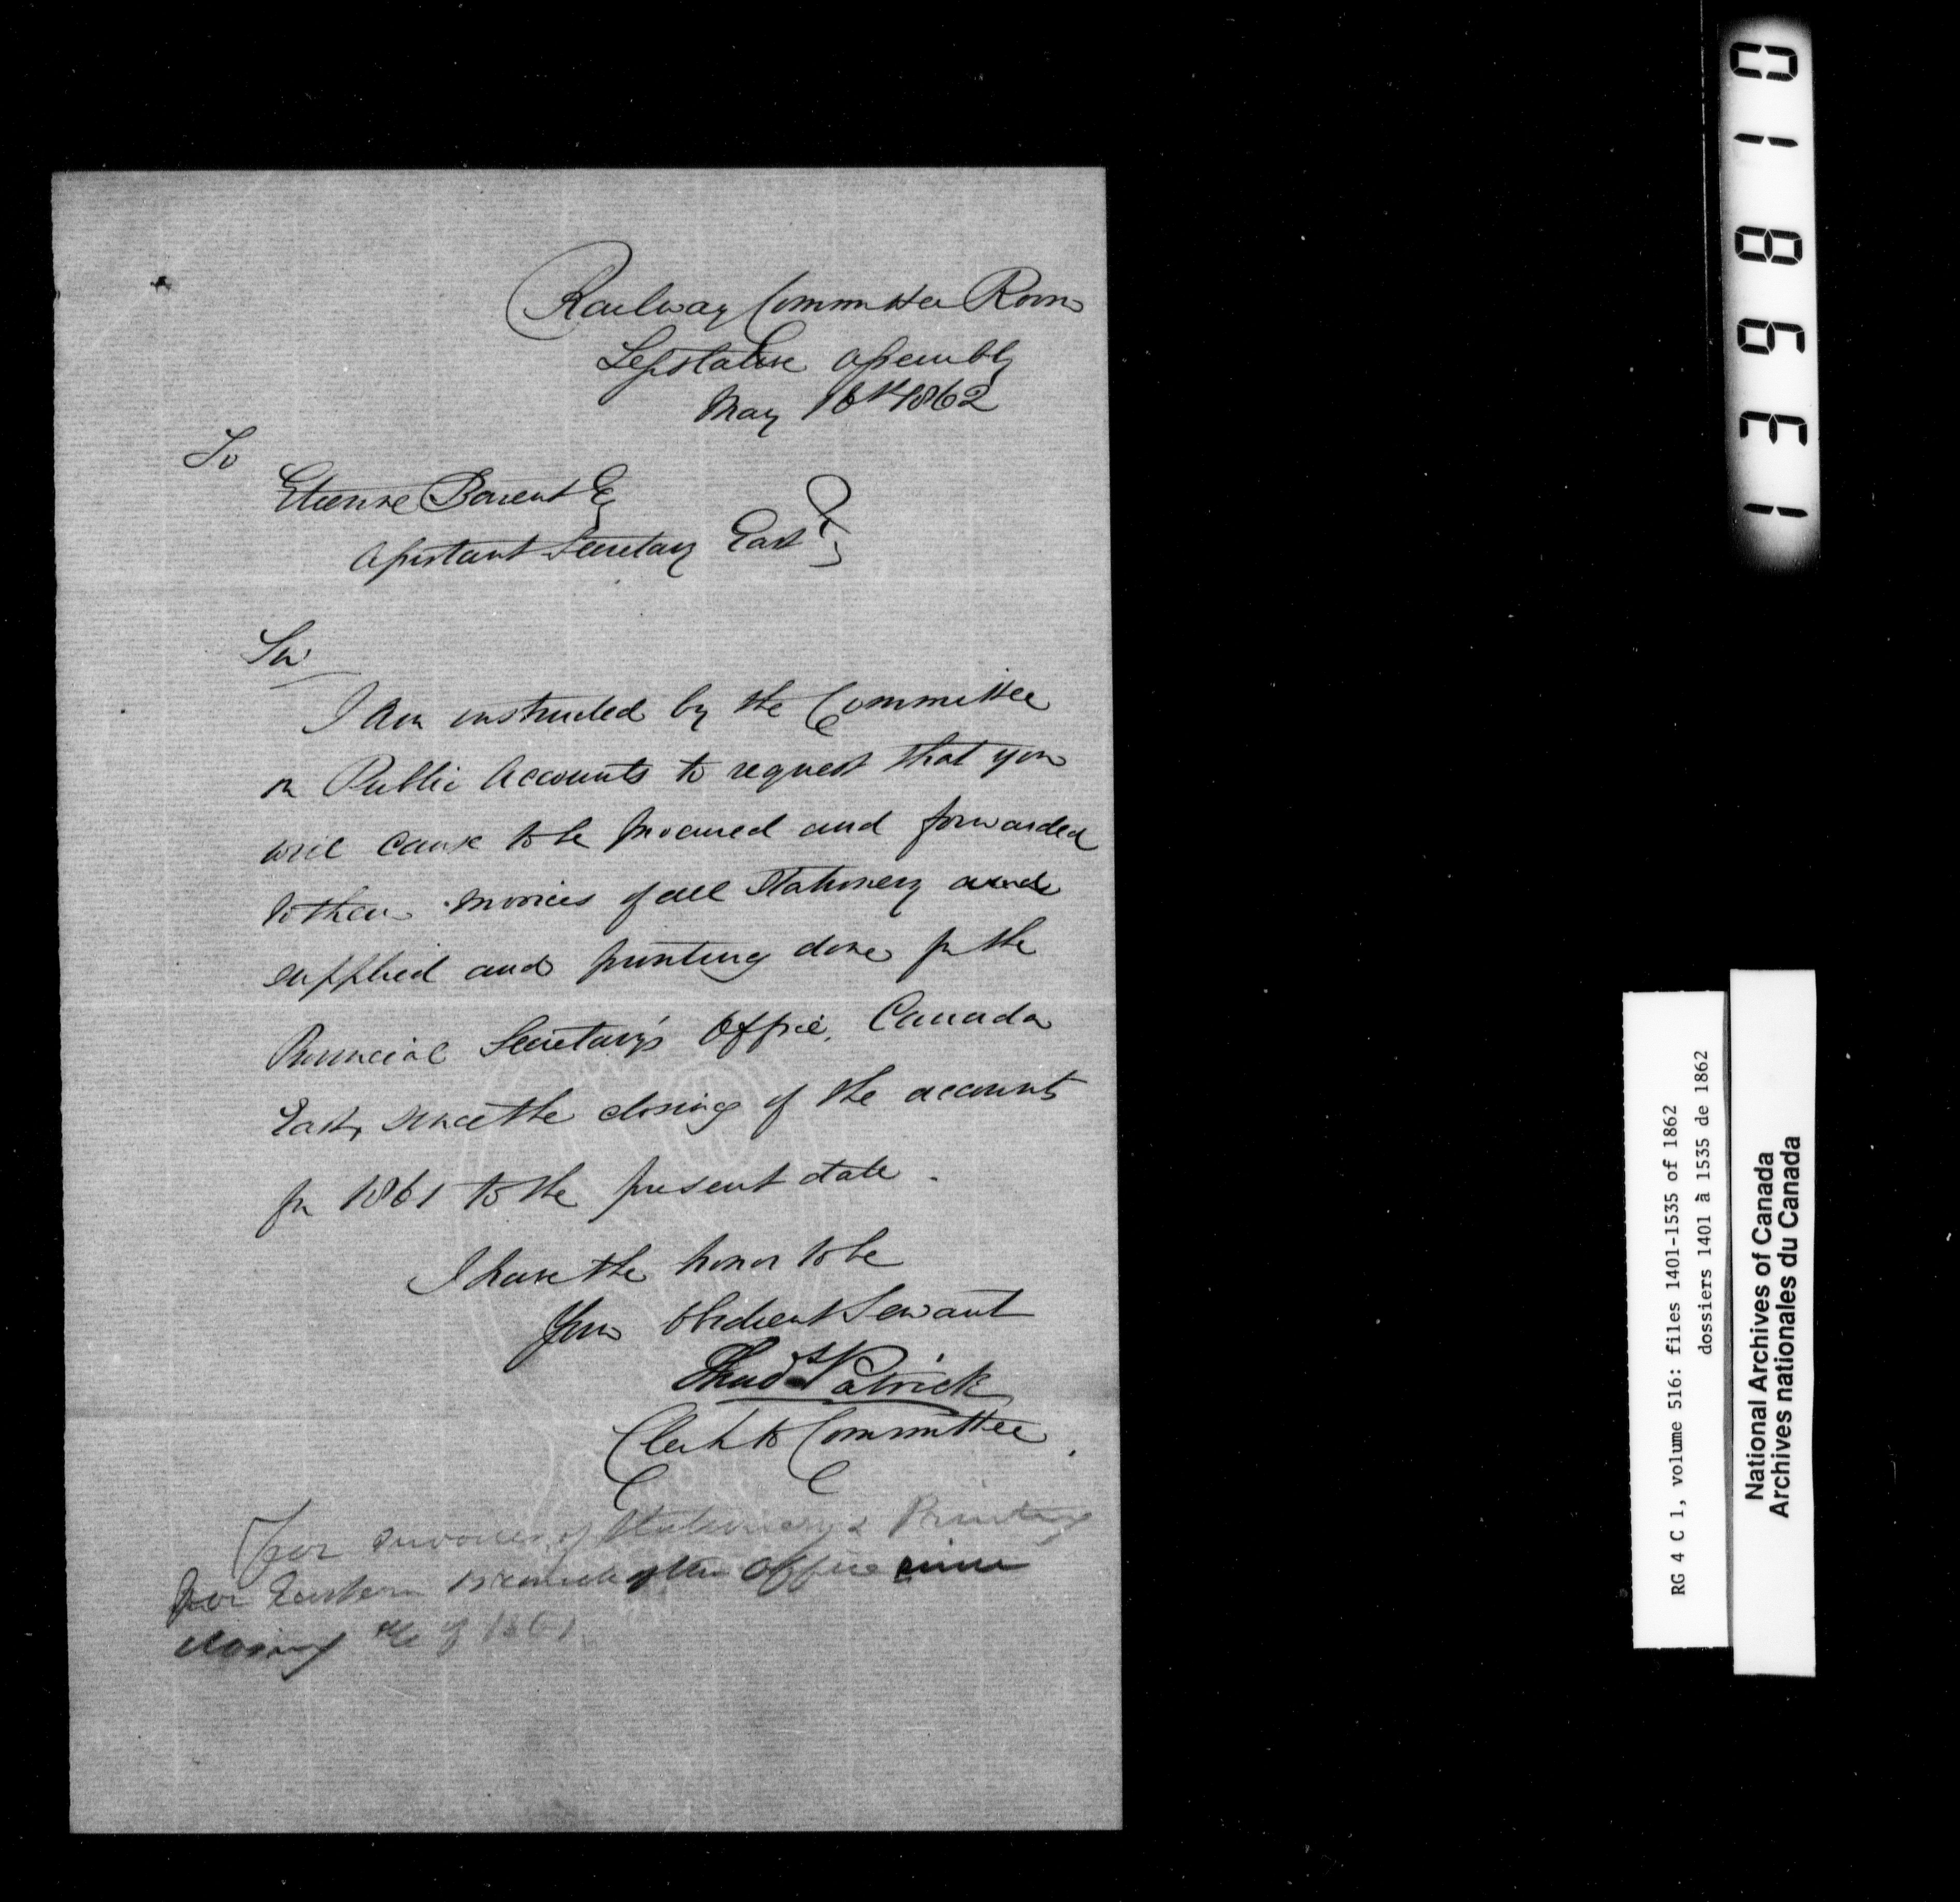 Railway Committee Room
Legislative Assembly
May 16th 1862
To
Etienne Parent Esq
Assistant Secretary East
Sir
I am instructed by the Committee
on Public Accounts to request that you
will cause to be procured and forwarded
to them invoices of all Stationery
supplied and printing done for the
Provincial Secretary's Office, Canada
East, since the closing of the accounts
for 1861 to the present date.
I have the honor to be
Your Obedient Servant
Thads Patrick
Clerk to Committee.
For invoices of Stationery & Printing
for Eastern Branch of the Office since
closing a/c of 1861.
018631
RG 4 C 1, volume 516: files 1401-1535 of 1862
dossiers 1401 à 1535 de 1862
National Archives of Canada
Archives nationales du Canada